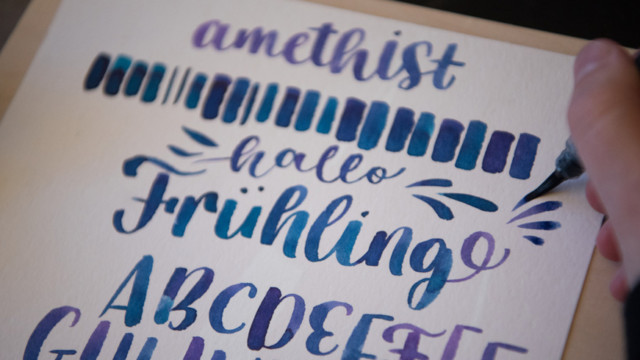 amethist
hallo
Frühling
ABCDE